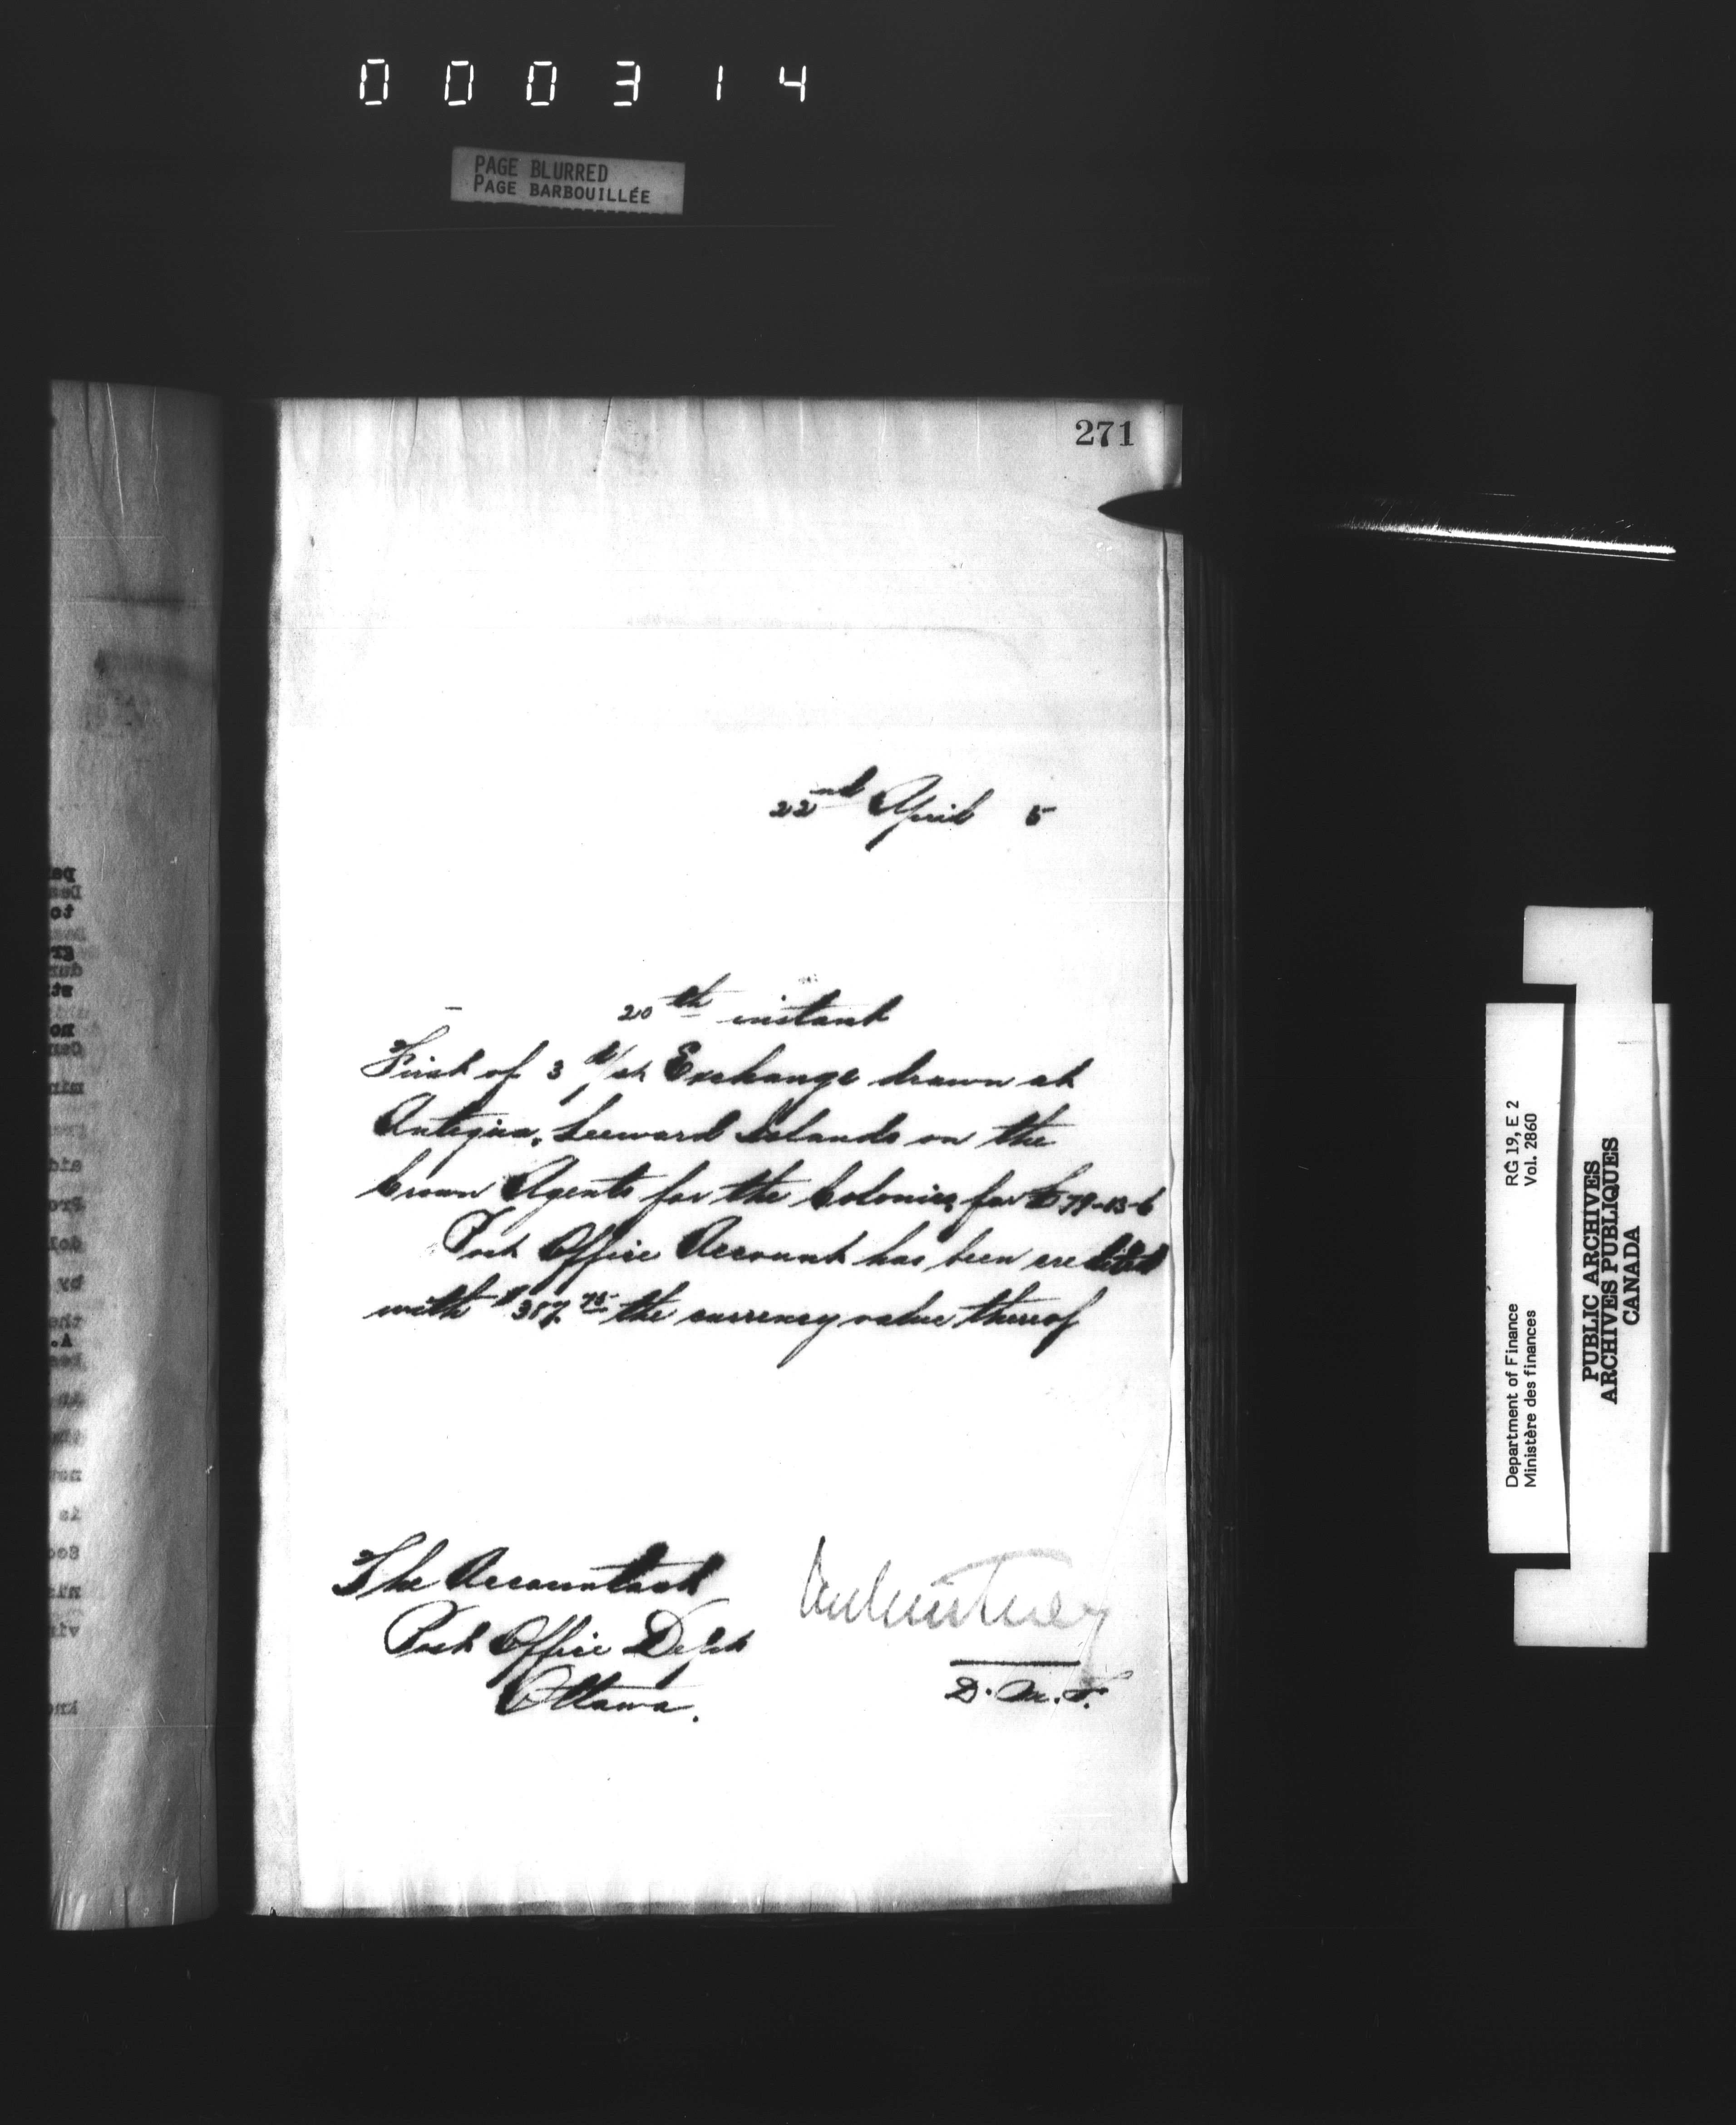 000314
PAGE BLURRED
PAGE BARBOUILLÉE
271
22nd April 5
20th instant
First of 3 d/st Exchange drawn at
Antigua, Leeward Islands on the
Crown Agents for the Colonies for £79-13-6
Post Office Account has been credited
with $387.75 the currency value thereof
The Accountant
Post Office Dept
Ottawa.
J M Courtney
D. M. F.
Department of Finance RG 19, E 2
Ministère des finances Vol. 2860
PUBLIC ARCHIVES
ARCHIVES PUBLIQUES
CANADA